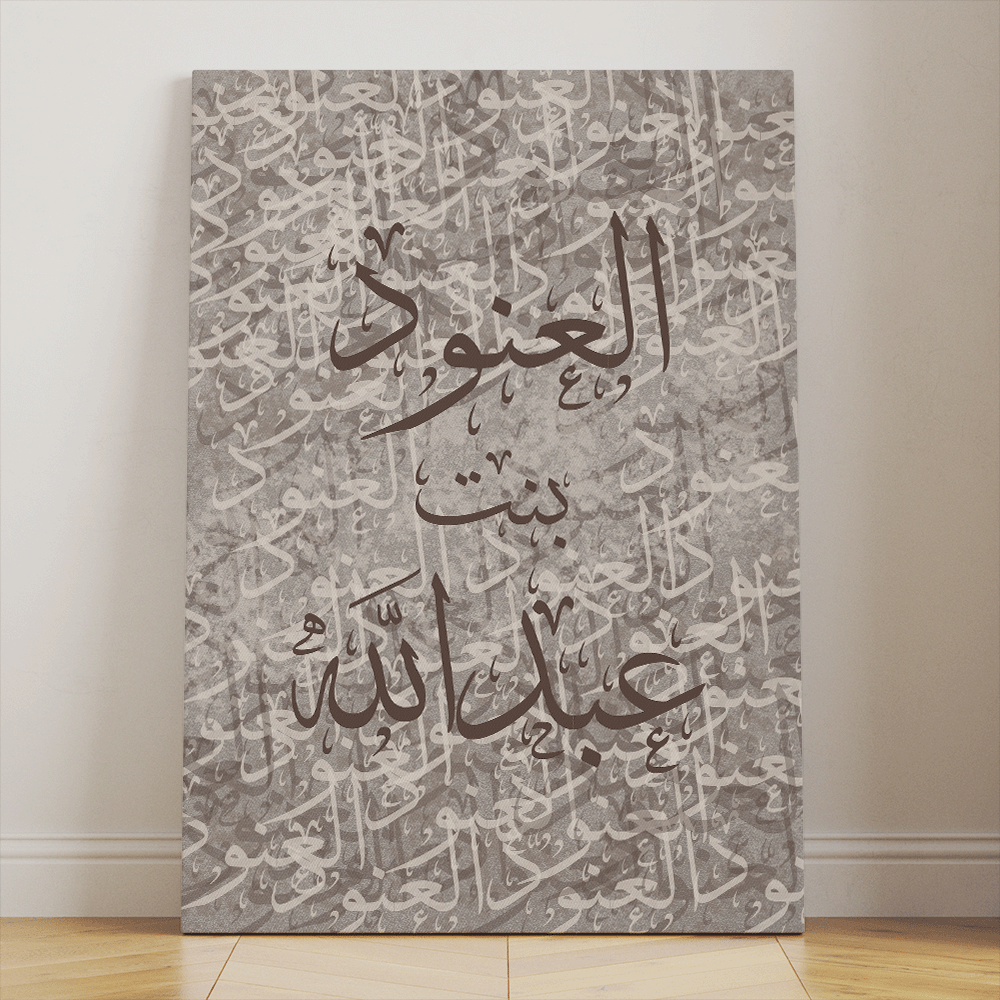 العنود
بنت
عبدالله